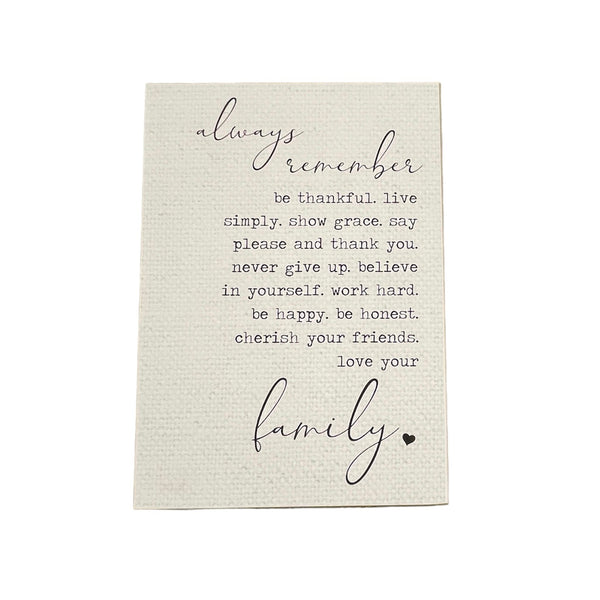 always
remember
be thankful. live
simply. show grace. say
please and thank you.
never give up. believe
in yourself. work hard.
be happy. be honest.
cherish your friends.
love your
family.